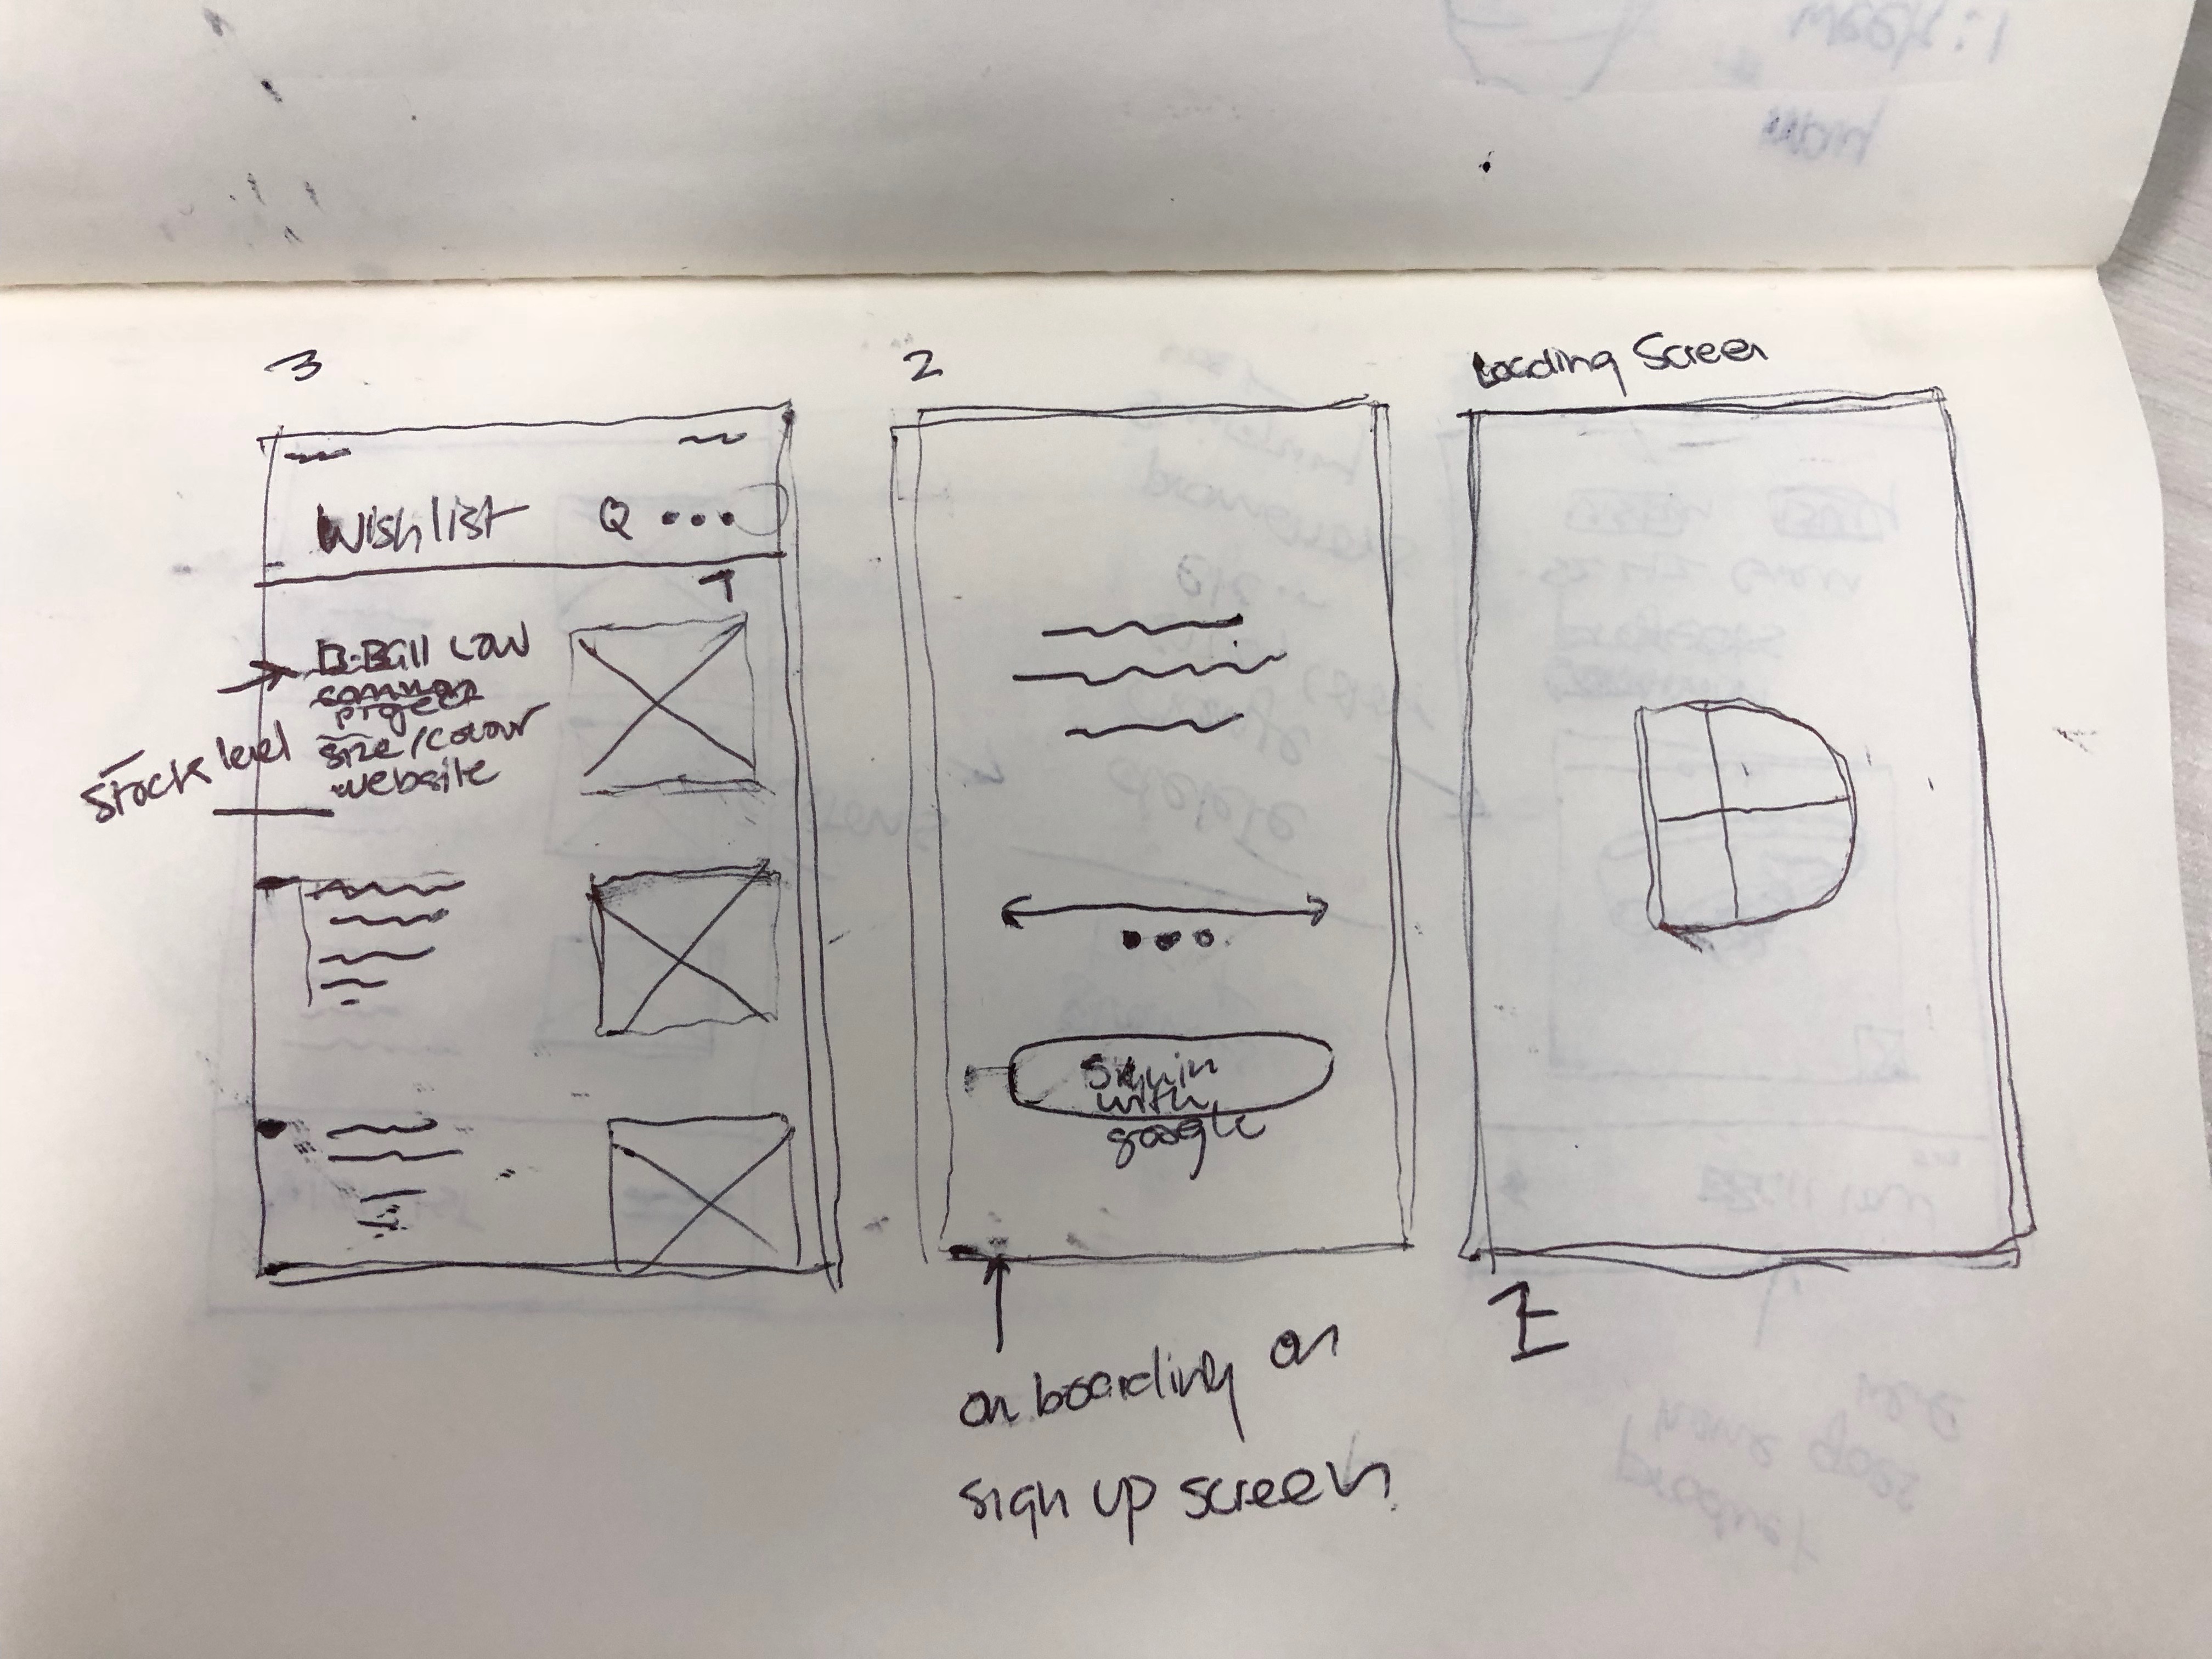 3
Wishlist Q •••
Low
common
project
size/colour
website
stock level
2
Sign in
with
google
onboarding on
sign up screen
Loading Screen